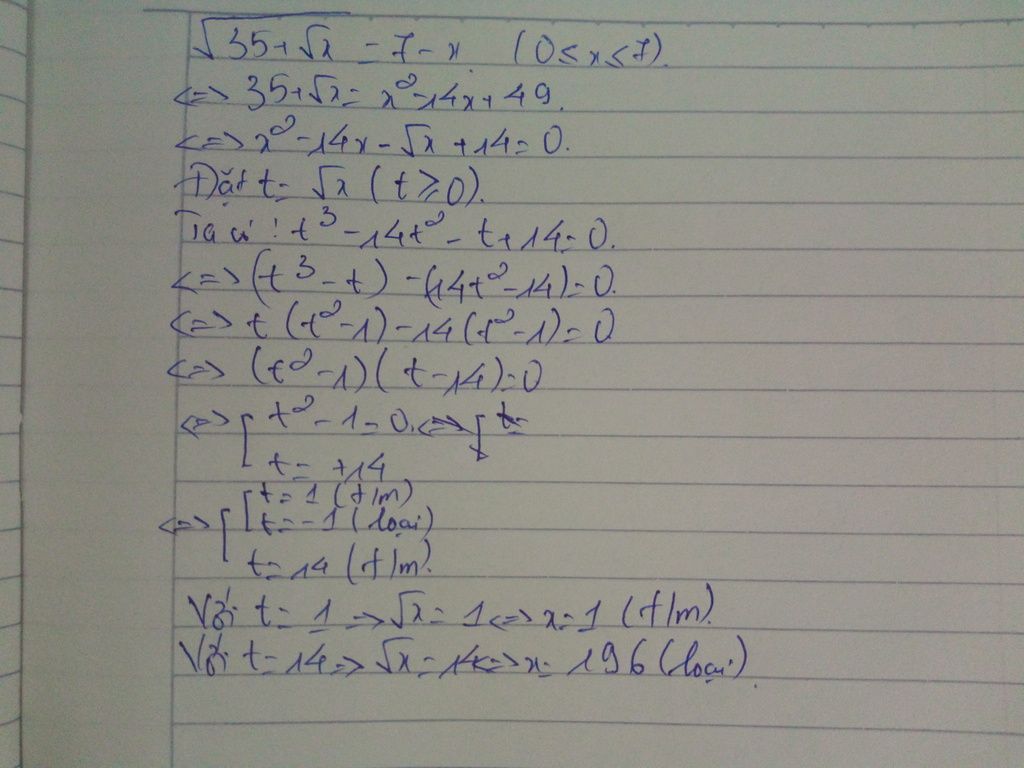 √35+√x = 7-x. (0≤x≤7).
<=> 35+√x = x²-14x+49.
<=> x²-14x-√x+14=0.
Đặt t= √x (t≥0).
Ta có: t³-14t²-t+14=0.
<=> (t³-t) -(14t²-14)=0.
<=> t(t²-1)-14(t²-1)=0
<=> (t²-1)(t-14)=0
<=> [ t²-1=0. <=> [ t=
t= +14
<=> [ [ t=1 (t/m)
t=-1 (loại)
t=14 (t/m).
Với t=1 => √x=1 <=> x=1 (t/m).
Với t=14 => √x=14 <=> x=196 (loại).